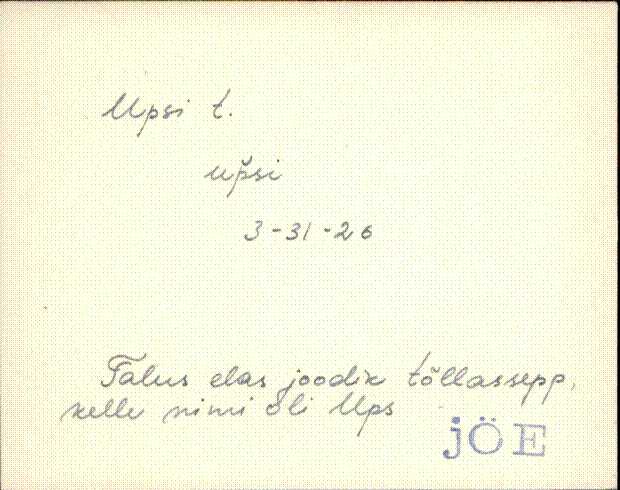 Upsi t.
up̆si
3-31-26
Talus elas joodik tõllassepp,
kelle nimi oli Ups
JÖE